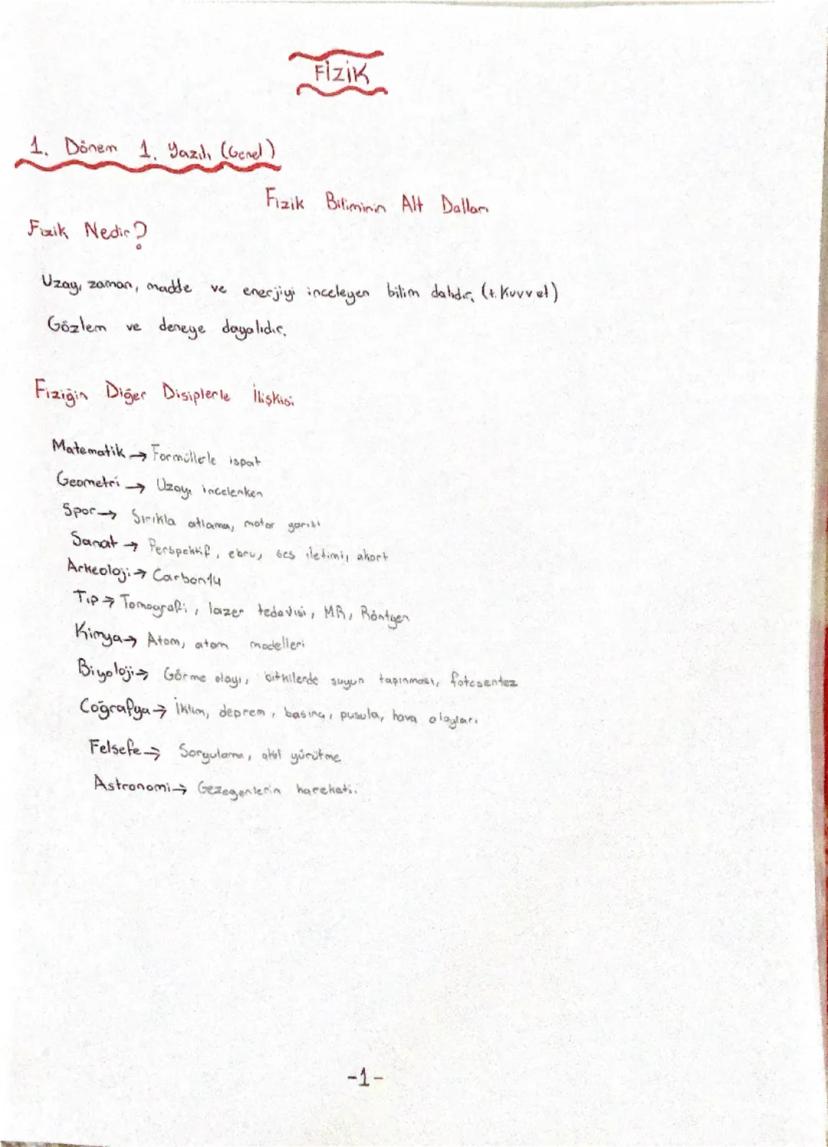 FİZİK
1. Dönem 1. Yazılı (Genel)
Fizik Biliminin Alt Dalları
Fizik Nedir?
Uzayı, zaman, madde ve enerjiyi inceleyen bilim dalıdır. (+. Kuvvet)
Gözlem ve deneye dayalıdır.
Fiziğin Diğer Disiplerle İlişkisi
Matematik → Formüllerle ispat
Geometri → Uzayı incelerken
Spor → Sırıkla atlama, motor yarışı
Sanat → Perspektif, ebru, ses iletimi, akort
Arkeoloji → Carbon14
Tıp → Tomografi, lazer tedavisi, MR, Röntgen
Kimya → Atom, atom modelleri
Biyoloji → Görme olayı, bitkilerde suyun taşınması, fotosentez
Coğrafya → İklim, deprem, basınç, pusula, hava olayları
Felsefe → Sorgulama, akıl yürütme
Astronomi → Gezegenlerin hareketi.
-1-